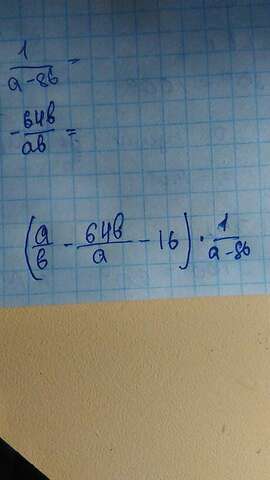 1/(a-8b) =
-64b/(ab) =
(a/b - 64b/a - 16) · 1/(a-8b)